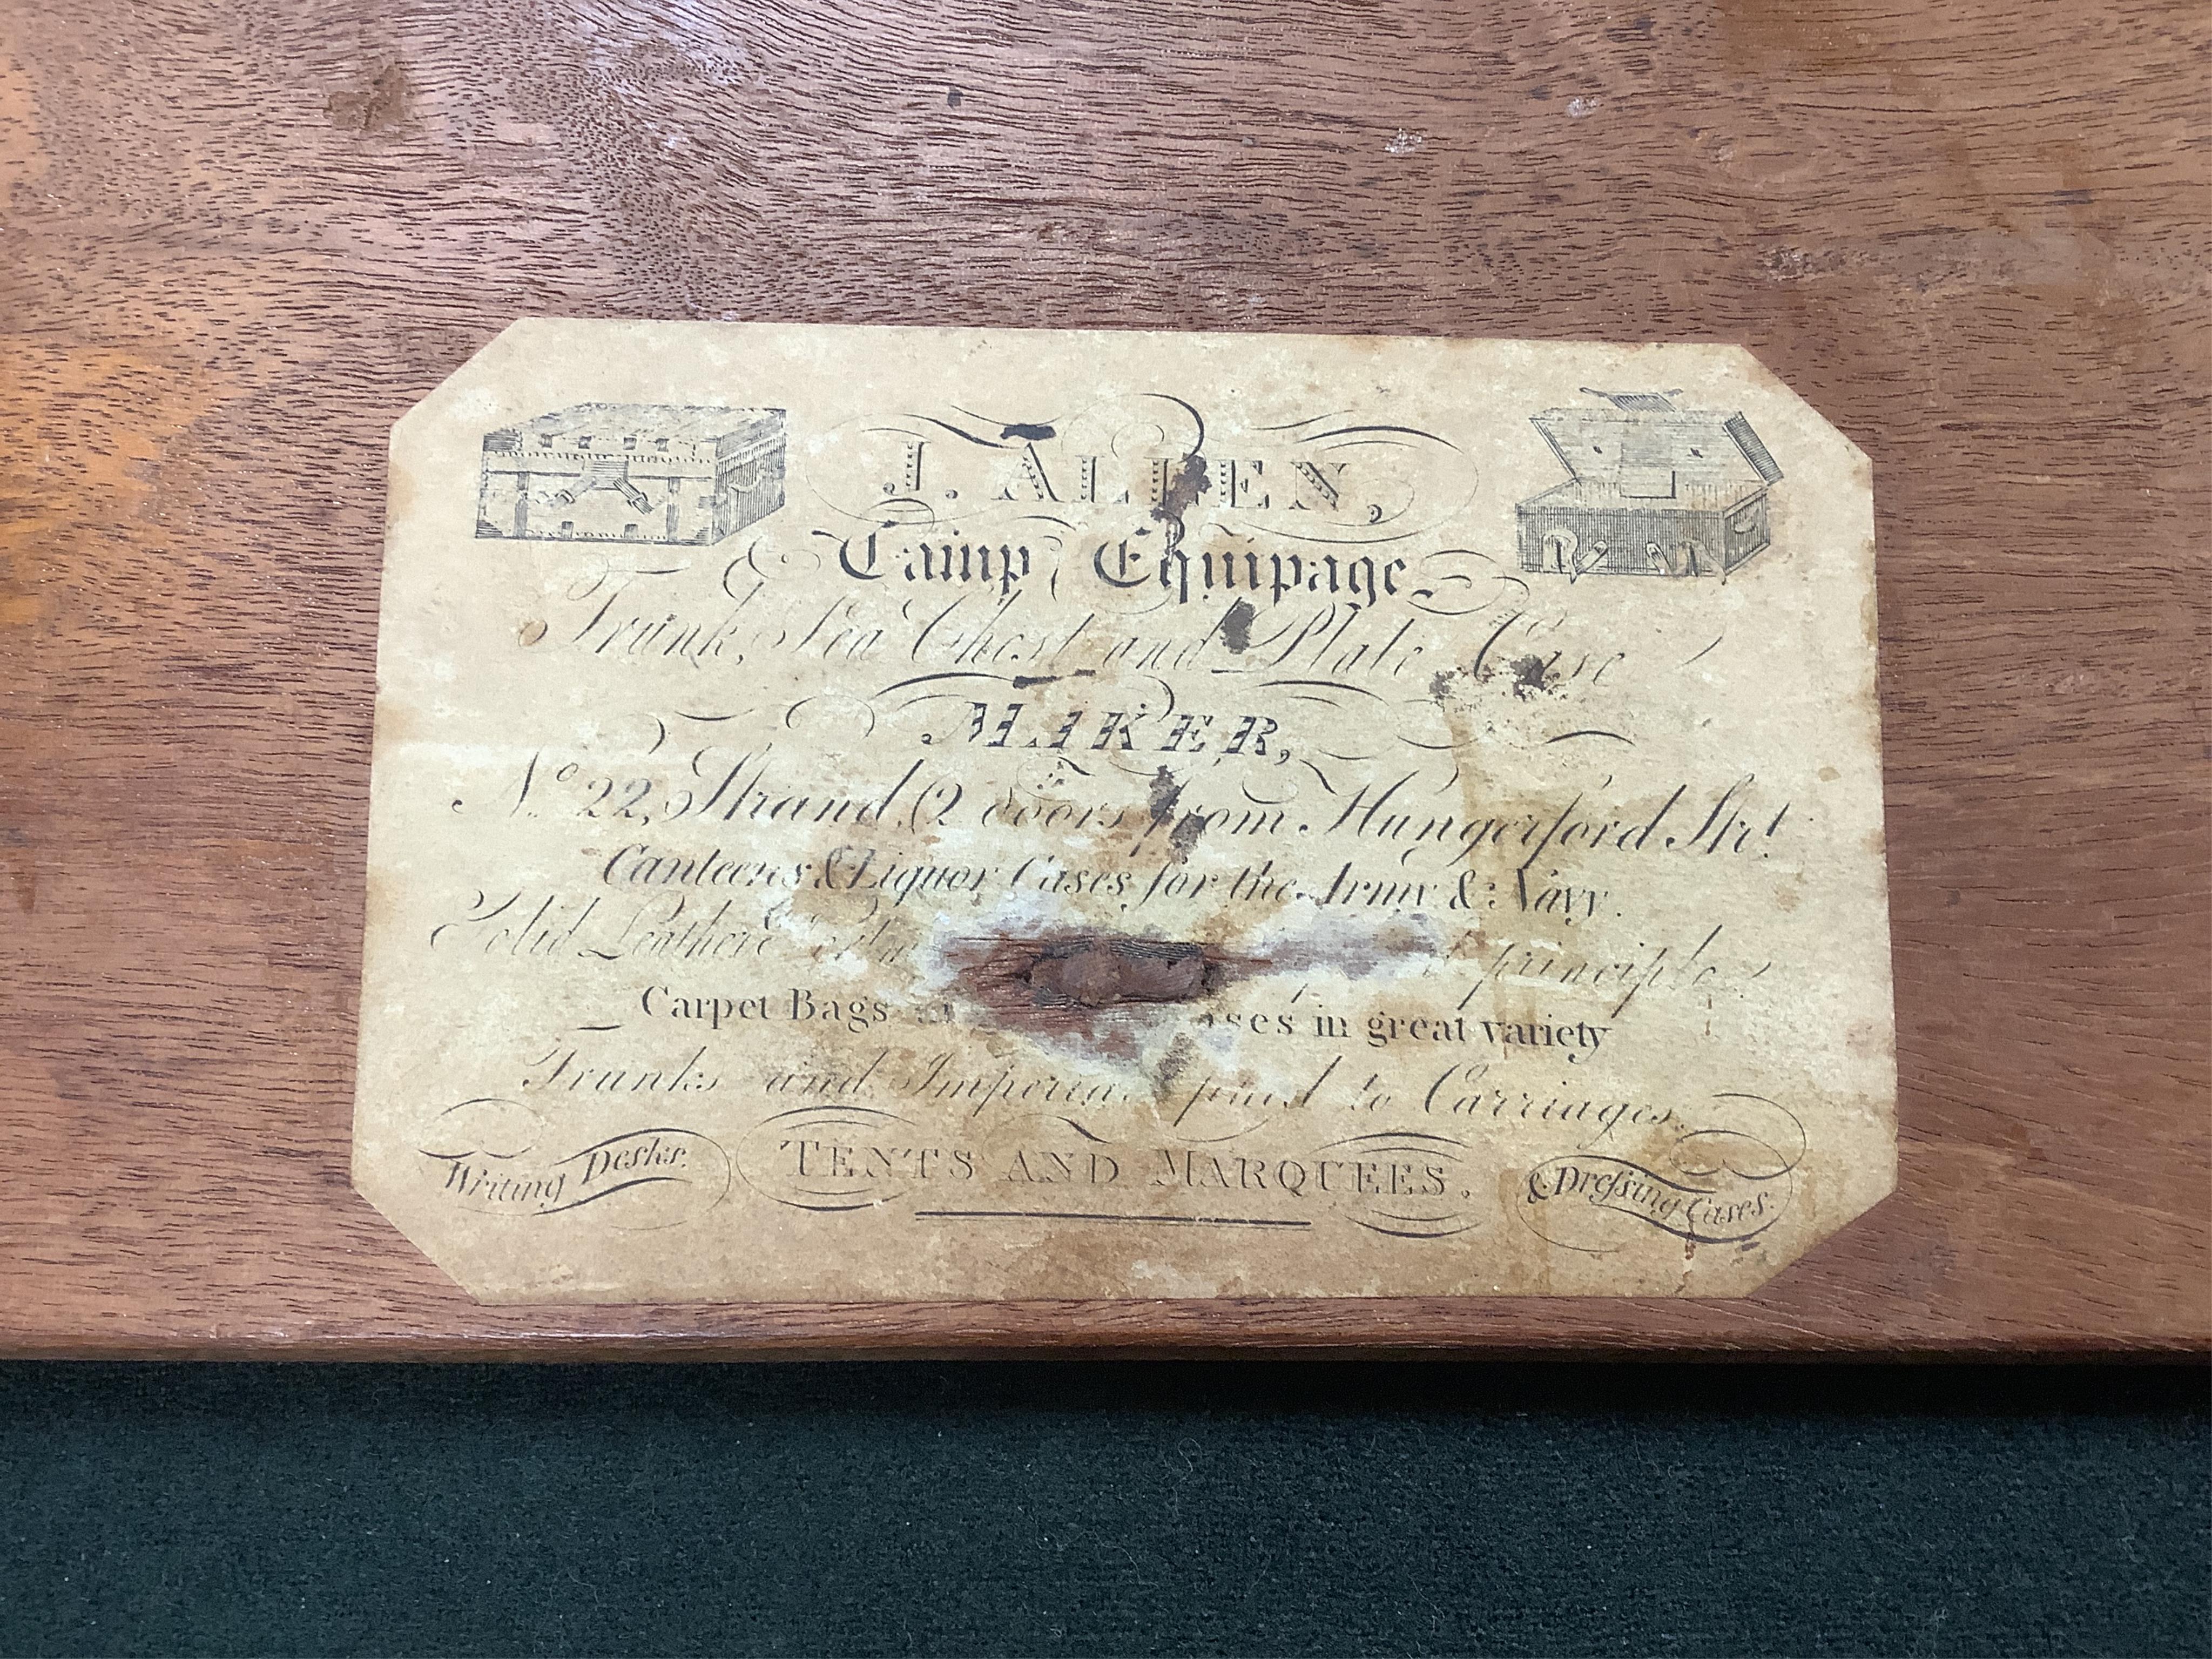 J. ALLEN,
Camp Equipage
Trunk, Sea Chest and Plate Case
MAKER,
No 22, Strand, (2 doors from Hungerford Strt.
Canteens & Liquor Cases for the Army & Navy.
Solid Leather principle
Carpet Bags in great variety
Trunks and to Carriages.
Writing Desks.
TENTS AND MARQUEES.
& Dreſsing Cases.